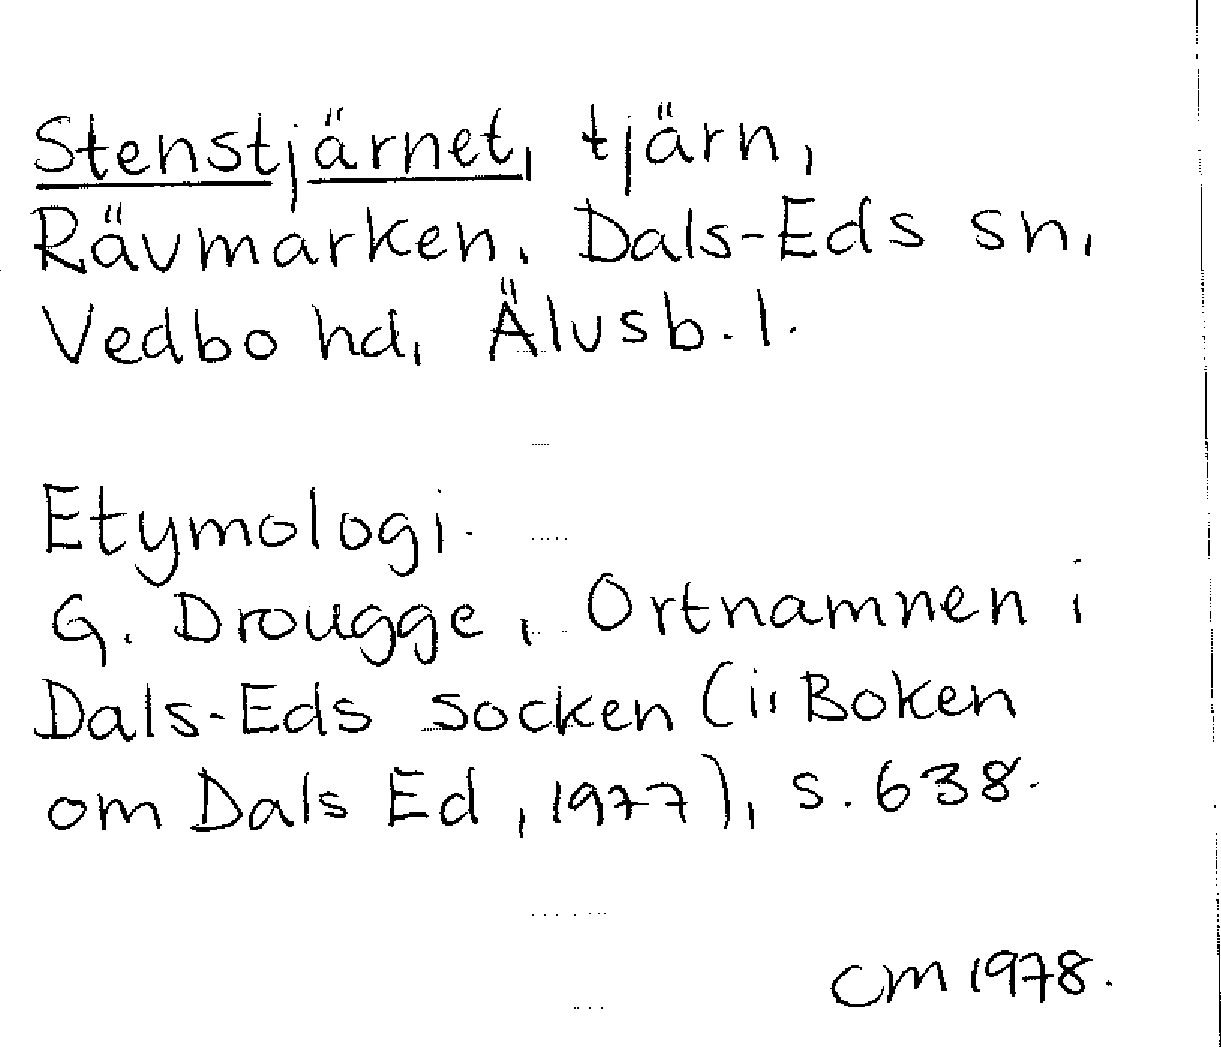 Stenstjärnet, tjärn,
Rävmarken, Dals-Eds sn,
Vedbo hd, Älvsb. l.
Etymologi.
G. Drougge, Ortnamnen i
Dals-Eds socken (i: Boken
om Dals Ed, 1977), s. 638.
CM 1978.